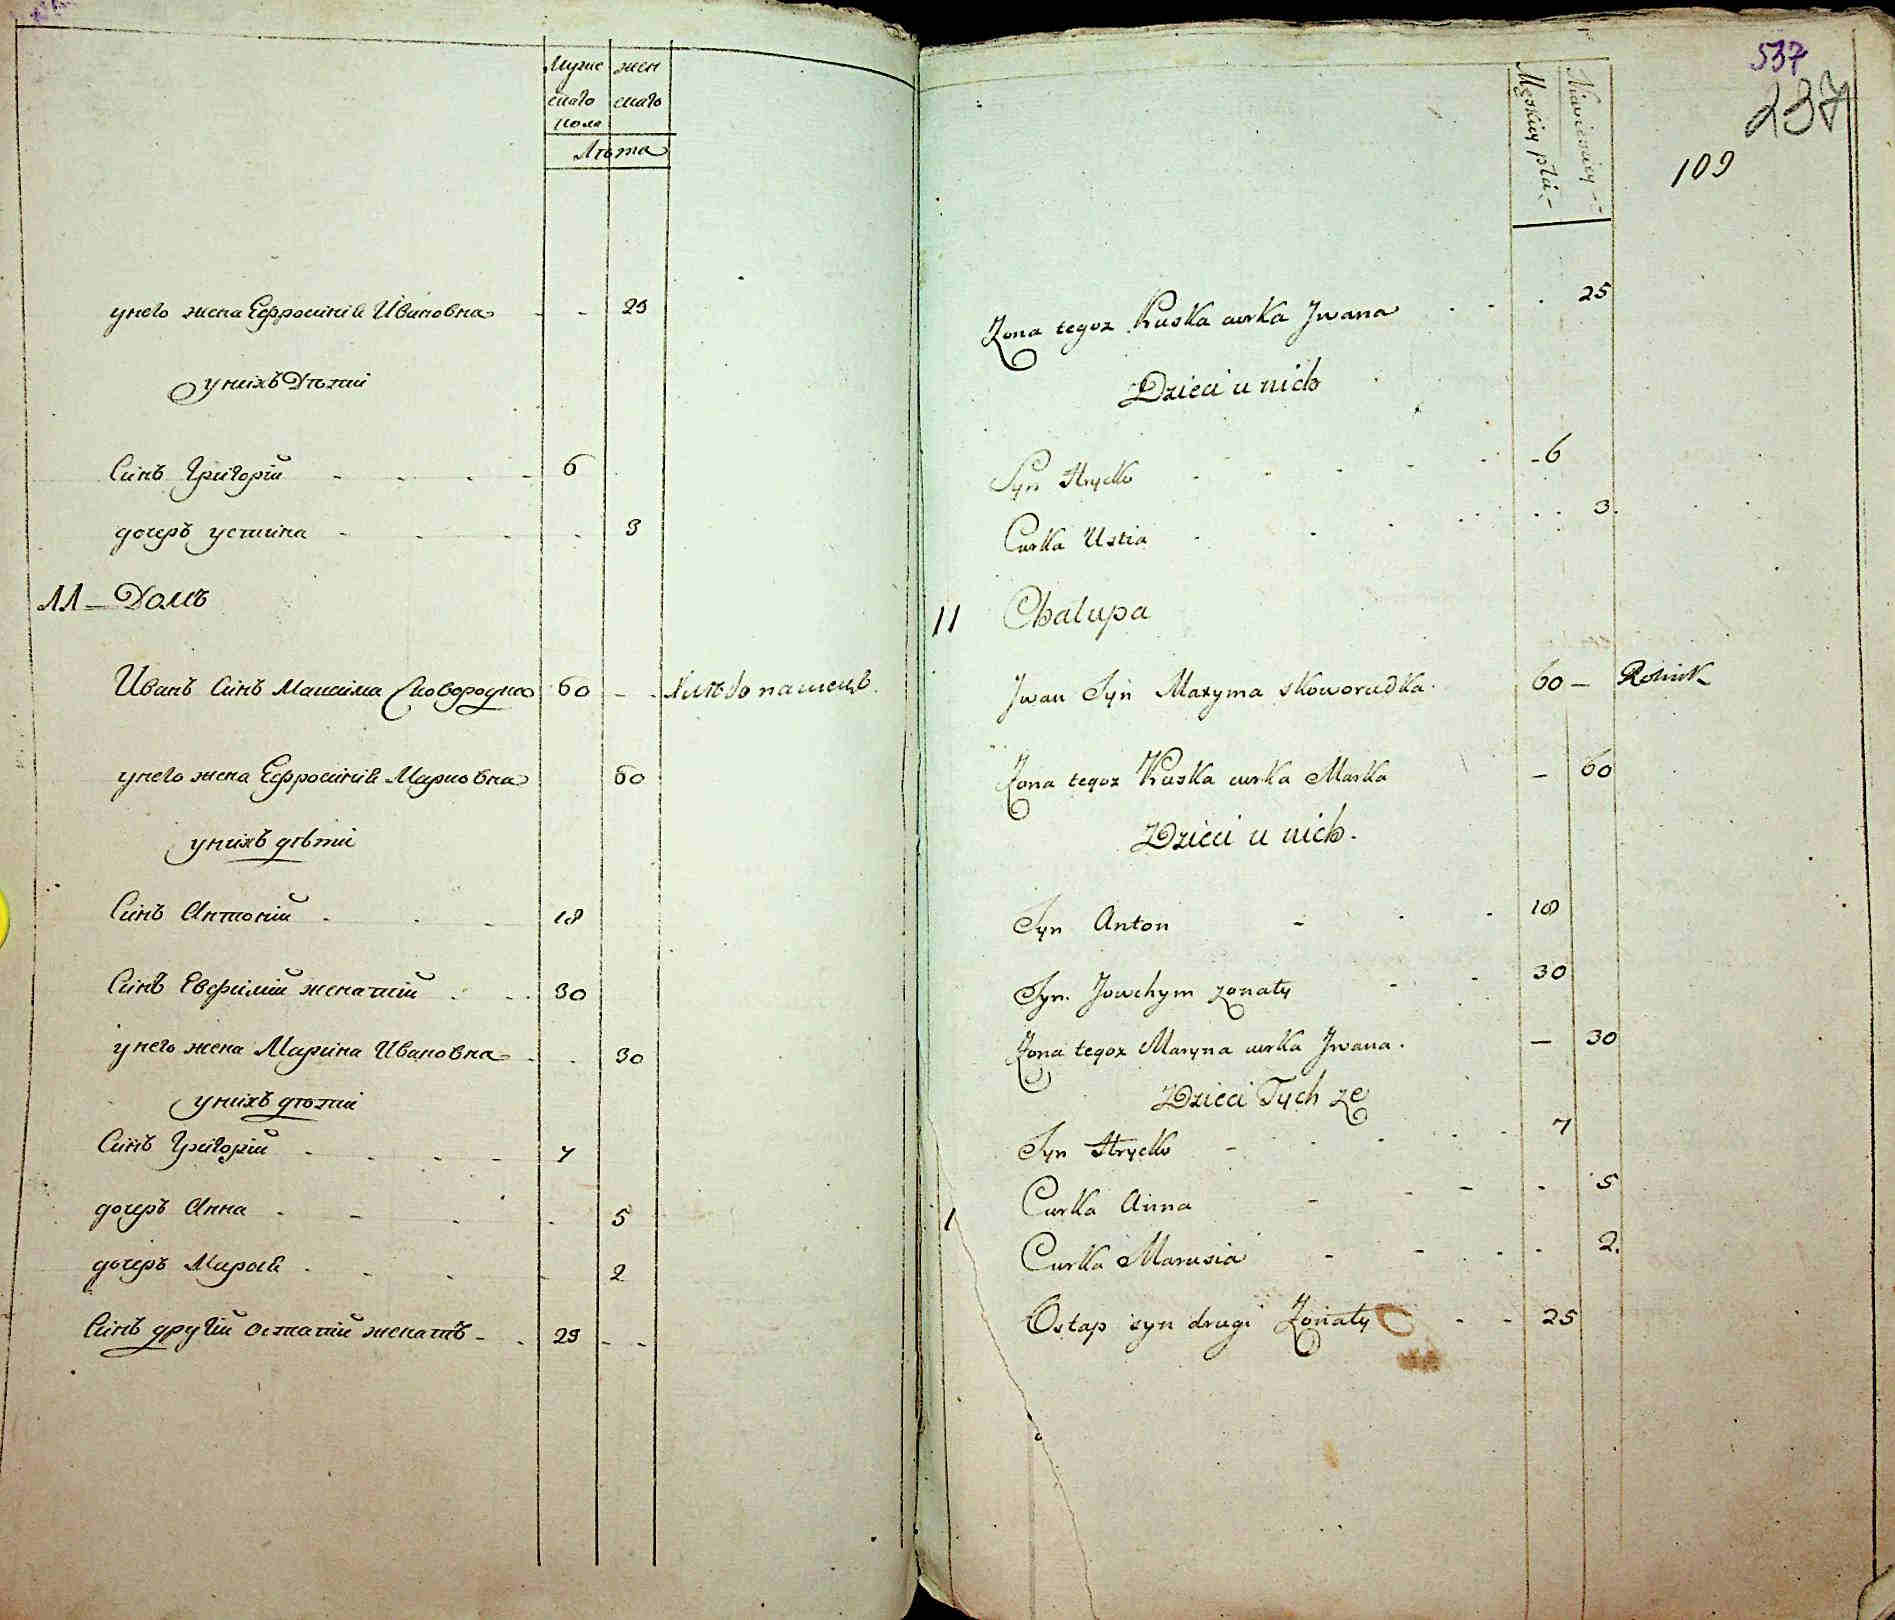 Мужескаго пола
женскаго
Лѣта
у него жена Ефросинія Ивановна - - 25
у нихъ Дѣти
Синъ Григорій - - - - 6
дочеръ устина - - - - - 3
11 - Домъ
Иванъ Синъ Максима Сковородка 60 - - Хлѣбопашецъ.
у него жена Ефросинія Марковна 60
у нихъ дѣти
Синъ Антоній - - - 18
Синъ Евфимій женатий - - - 30
у него жена Марина Ивановна - - 30
у нихъ дѣти
Синъ Григорій - - - - 7
дочеръ Анна - - - - 5
дочеръ Марія - - - - 2
Синъ другій Остапій женатъ - - 25 - -
537
237
109
Męskiey płci
Niewieściey
Zona tegoz Ruska curka Jwana - - - 25
Dzieci u nich
Syn Hrycko - - - - - - 6
Curka Ustia - - - - - - 3.
11 Chalupa
Jwan Syn Maxyma skoworudka. 60 - Rolnik
Zona tegoz Ruska curka Marka - 60
Dzieci u nich.
Syn Anton - - - 18
Syn. Jowchym zonaty - - 30
Zona tegoz Maryna curka Jwana. - 30
Dzieci Tych ze
Syn Hrycko - - - - - 7
Curka Anna - - - - 5
Curka Marusia - - - - 2.
Ostap syn drugi Zonaty - - 25